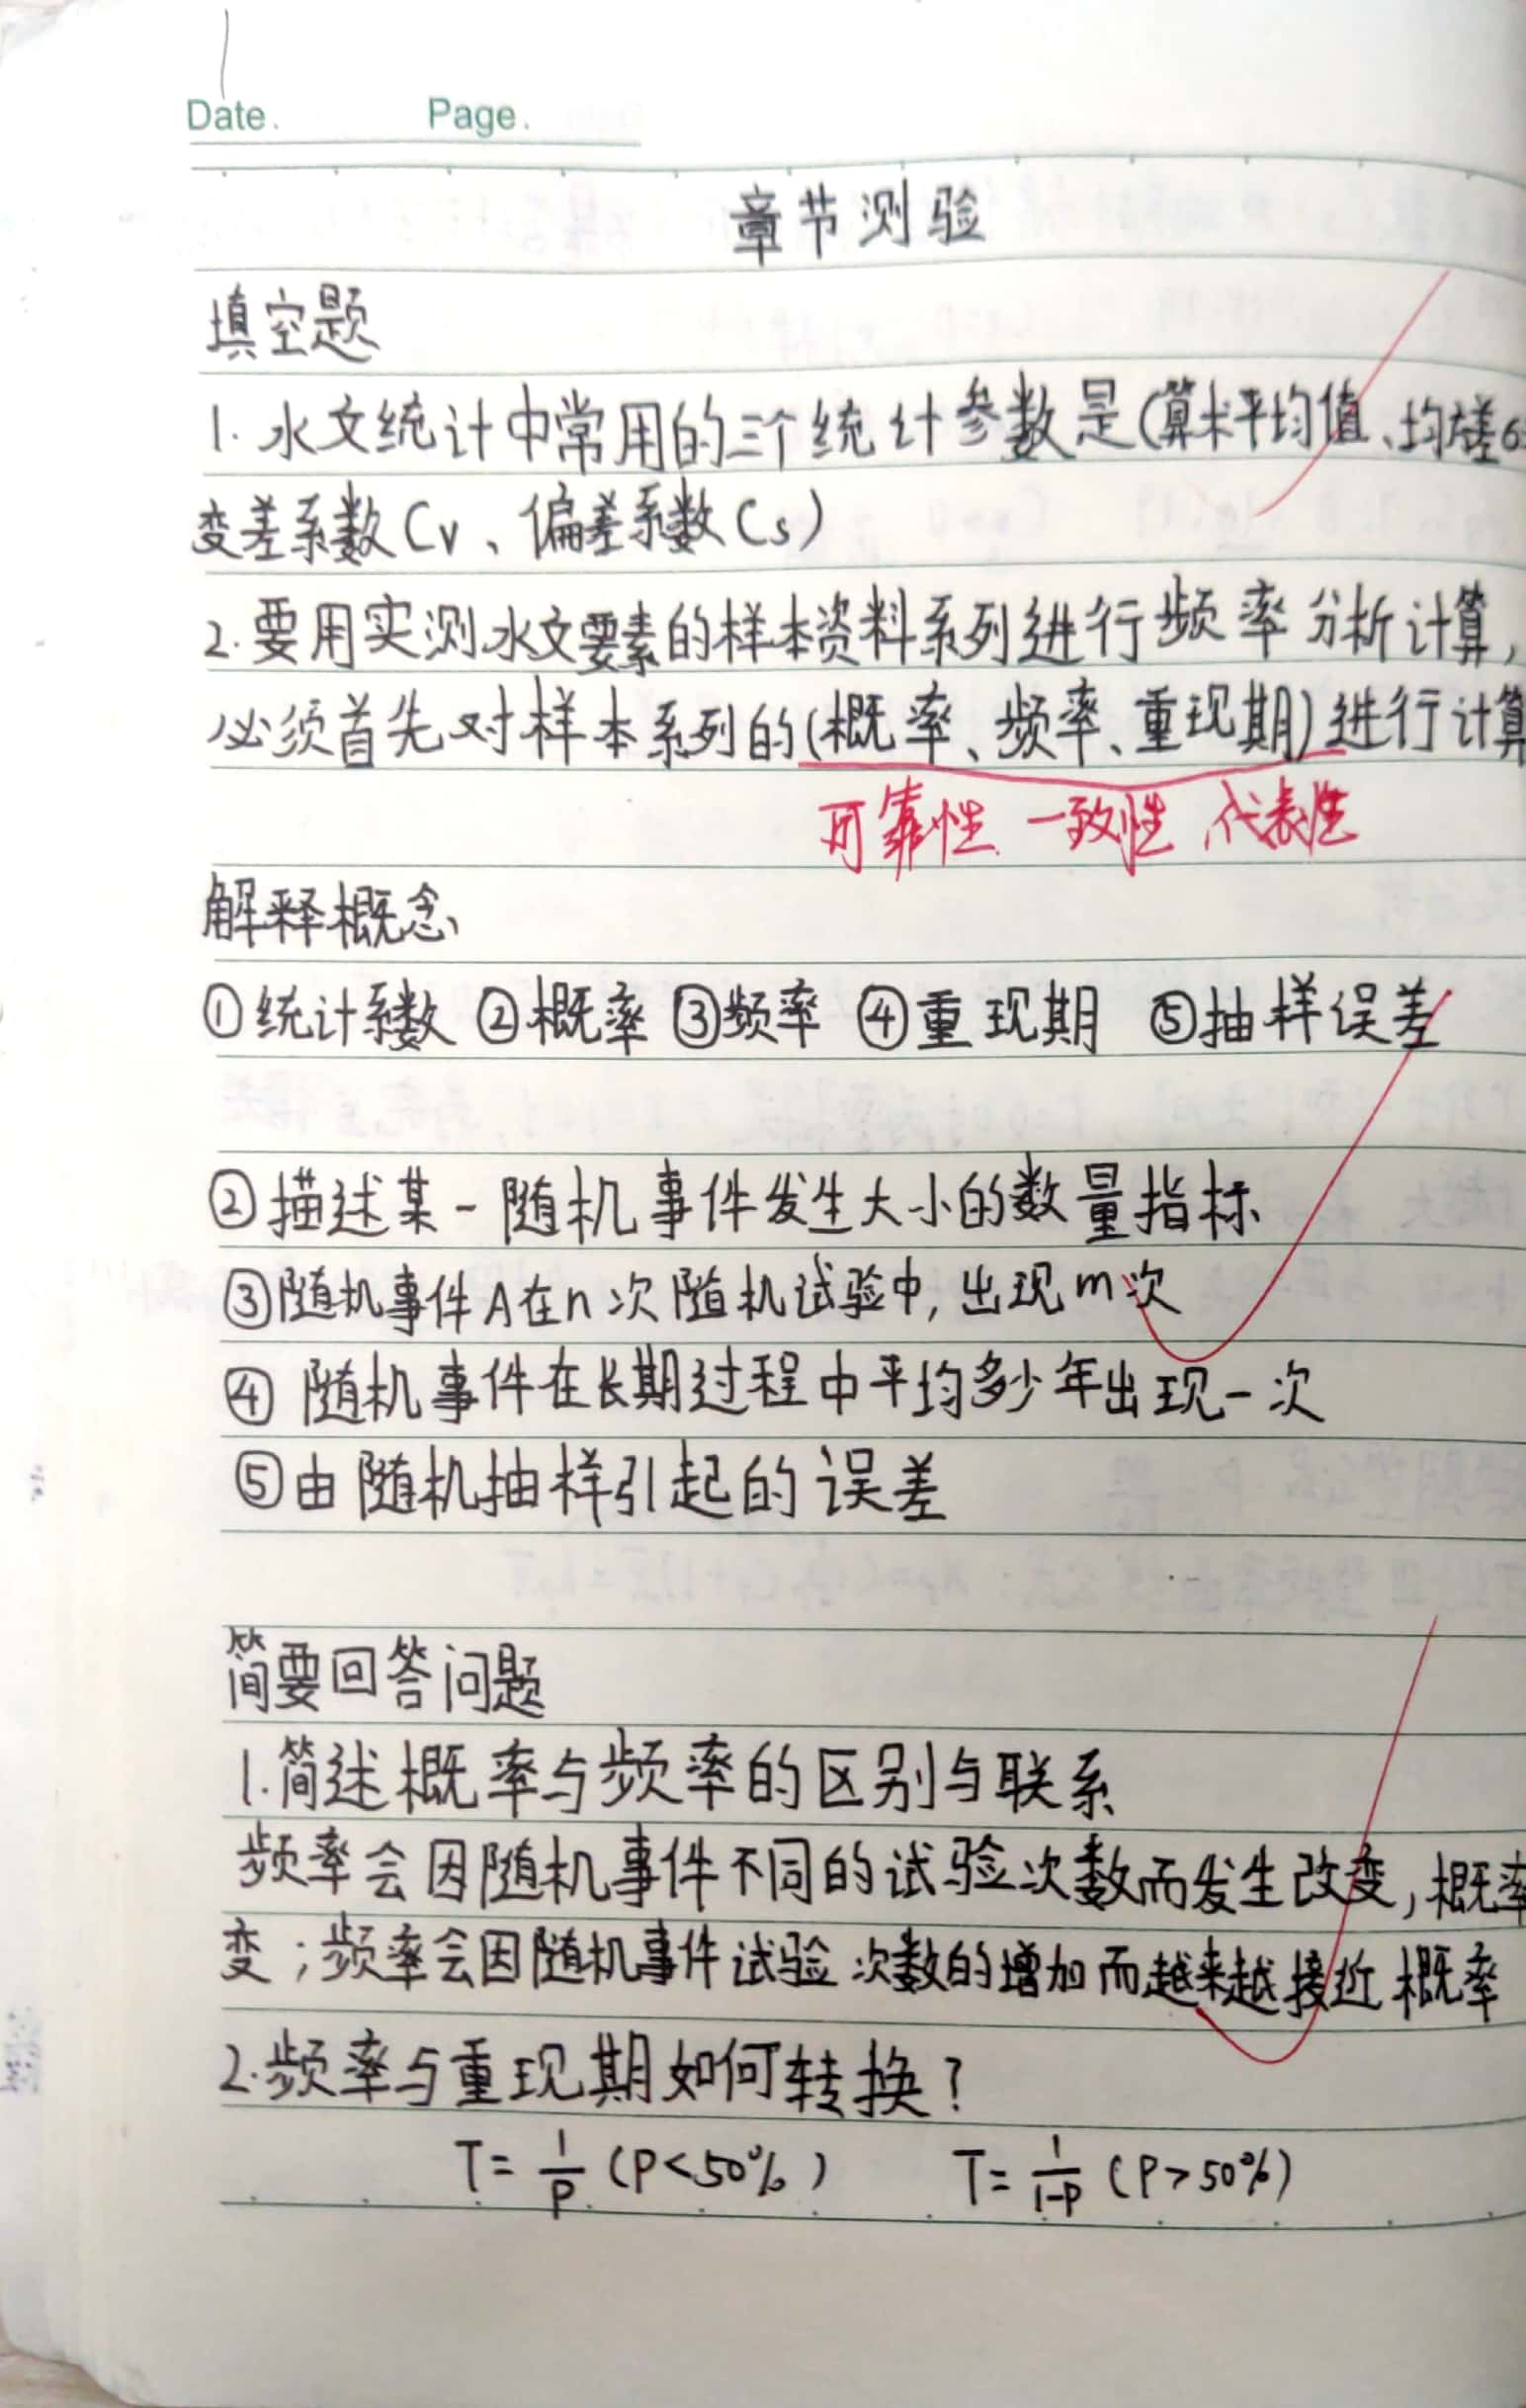 Date. Page.
章节测验
填空题
1. 水文统计中常用的三个统计参数是(算术平均值、均方差σ
变差系数Cv、偏差系数Cs)
2. 要用实测水文要素的样本资料系列进行频率分析计算,
必须首先对样本系列的(概率、频率、重现期)进行计算
可靠性 一致性、代表性
解释概念
①统计系数 ②概率 ③频率 ④重现期 ⑤抽样误差
②描述某一随机事件发生大小的数量指标
③随机事件A在n次随机试验中, 出现m次
④随机事件在长期过程中平均多少年出现一次
⑤由随机抽样引起的误差
简要回答问题
1.简述概率与频率的区别与联系
频率会因随机事件不同的试验次数而发生改变, 概率
变;频率会因随机事件试验次数的增加而越来越接近概率
2.频率与重现期如何转换?
T=1/P (P<50%) T=1/1-P (P>50%)